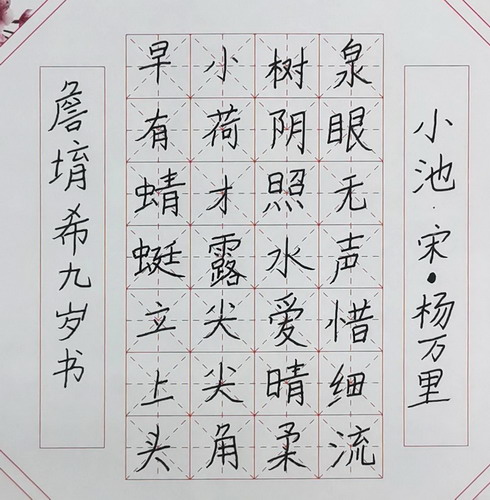 小池·宋·杨万里
泉眼无声惜细流
树阴照水爱晴柔
小荷才露尖尖角
早有蜻蜓立上头
詹堉希九岁书